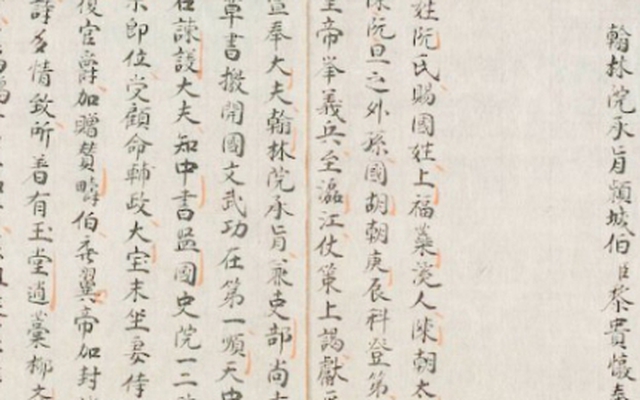 翰林院承旨頴城伯臣黎貴惇奉
姓阮氏賜國姓上福蘂溪人陳朝太
阮旦之外孫國胡朝庚辰科登第
皇帝举義兵至㵢江仗策上謁獻
宣奉大夫翰林院承旨兼吏部尚
草書撥開國文武功在第一順天中
諫議大夫知中書監國史院一二
即位受顧命輔政大宝末坐妾侍
復官爵加贈賛疇伯襄翼帝加封
諱多情致所着有玉堂逍藁柳